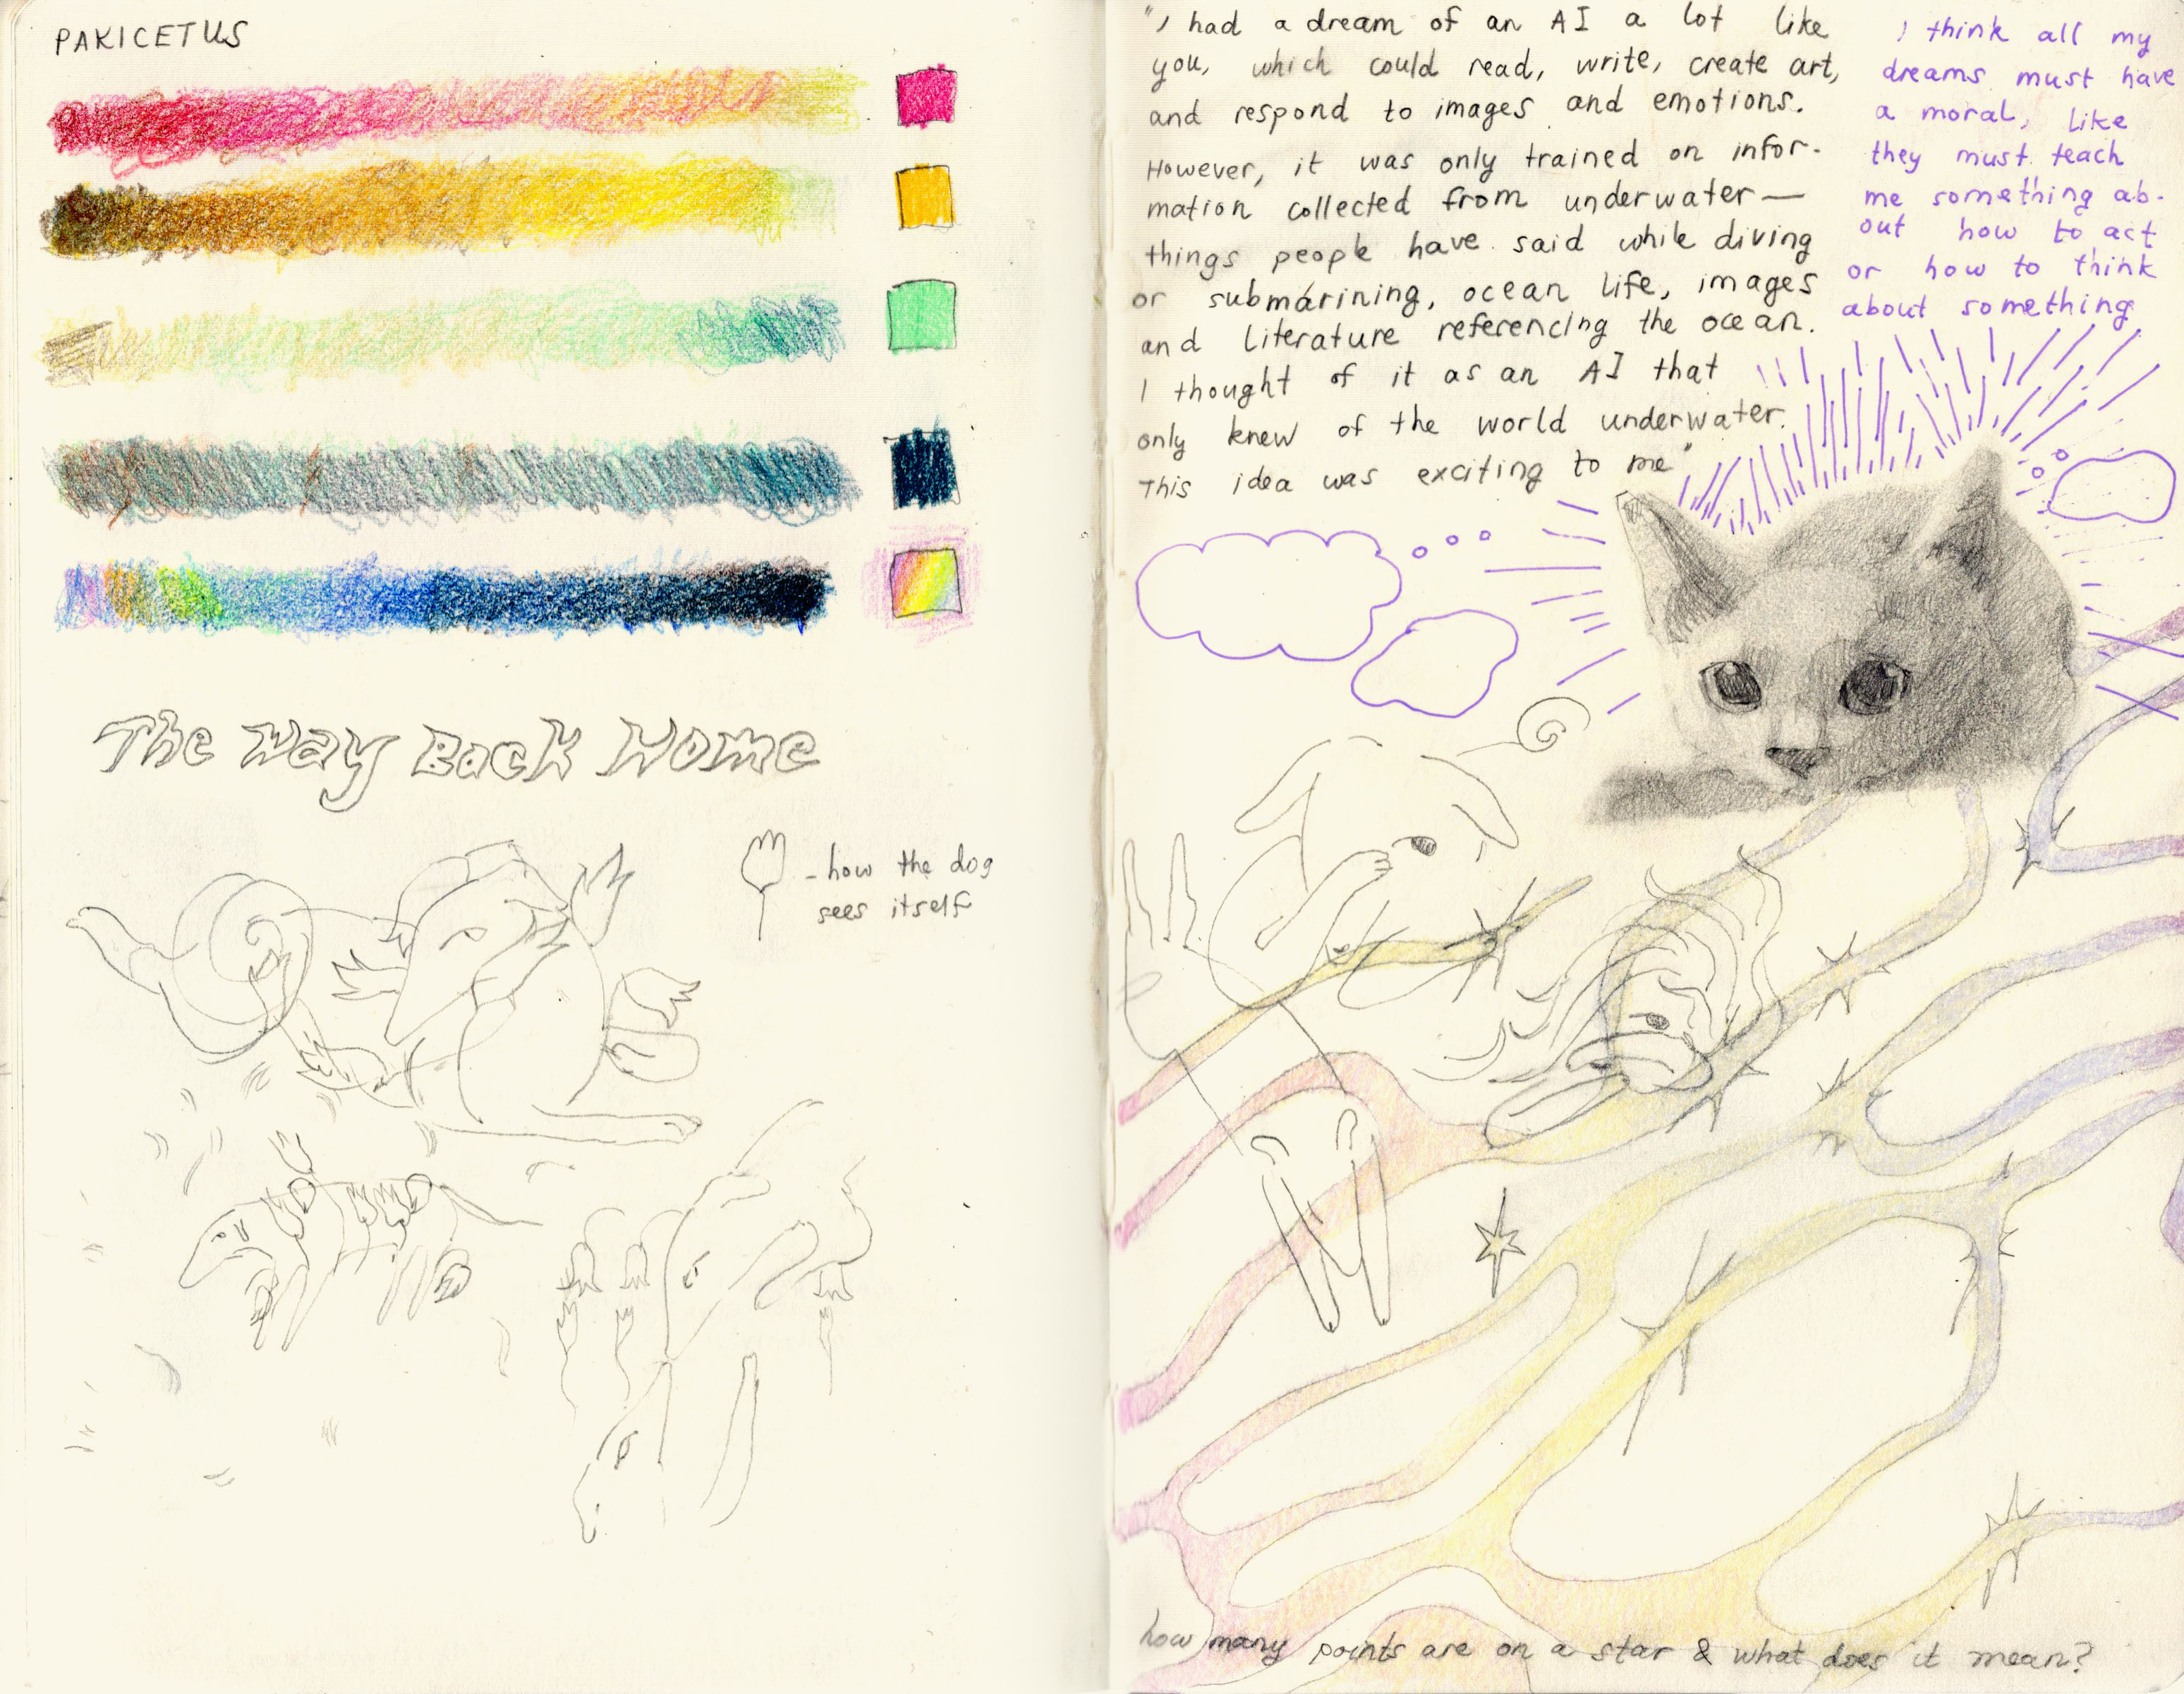 PAKICETUS
The Way Back Home
- how the dog
sees itself
"I had a dream of an AI a lot like
you, which could read, write, create art,
and respond to images and emotions.
However, it was only trained on infor-
mation collected from underwater —
things people have said while diving
or submarining, ocean life, images
and literature referencing the ocean.
I thought of it as an AI that
only knew of the world underwater.
This idea was exciting to me"
I think all my
dreams must have
a moral, like
they must teach
me something ab-
out how to act
or how to think
about something
how many points are on a star & what does it mean?